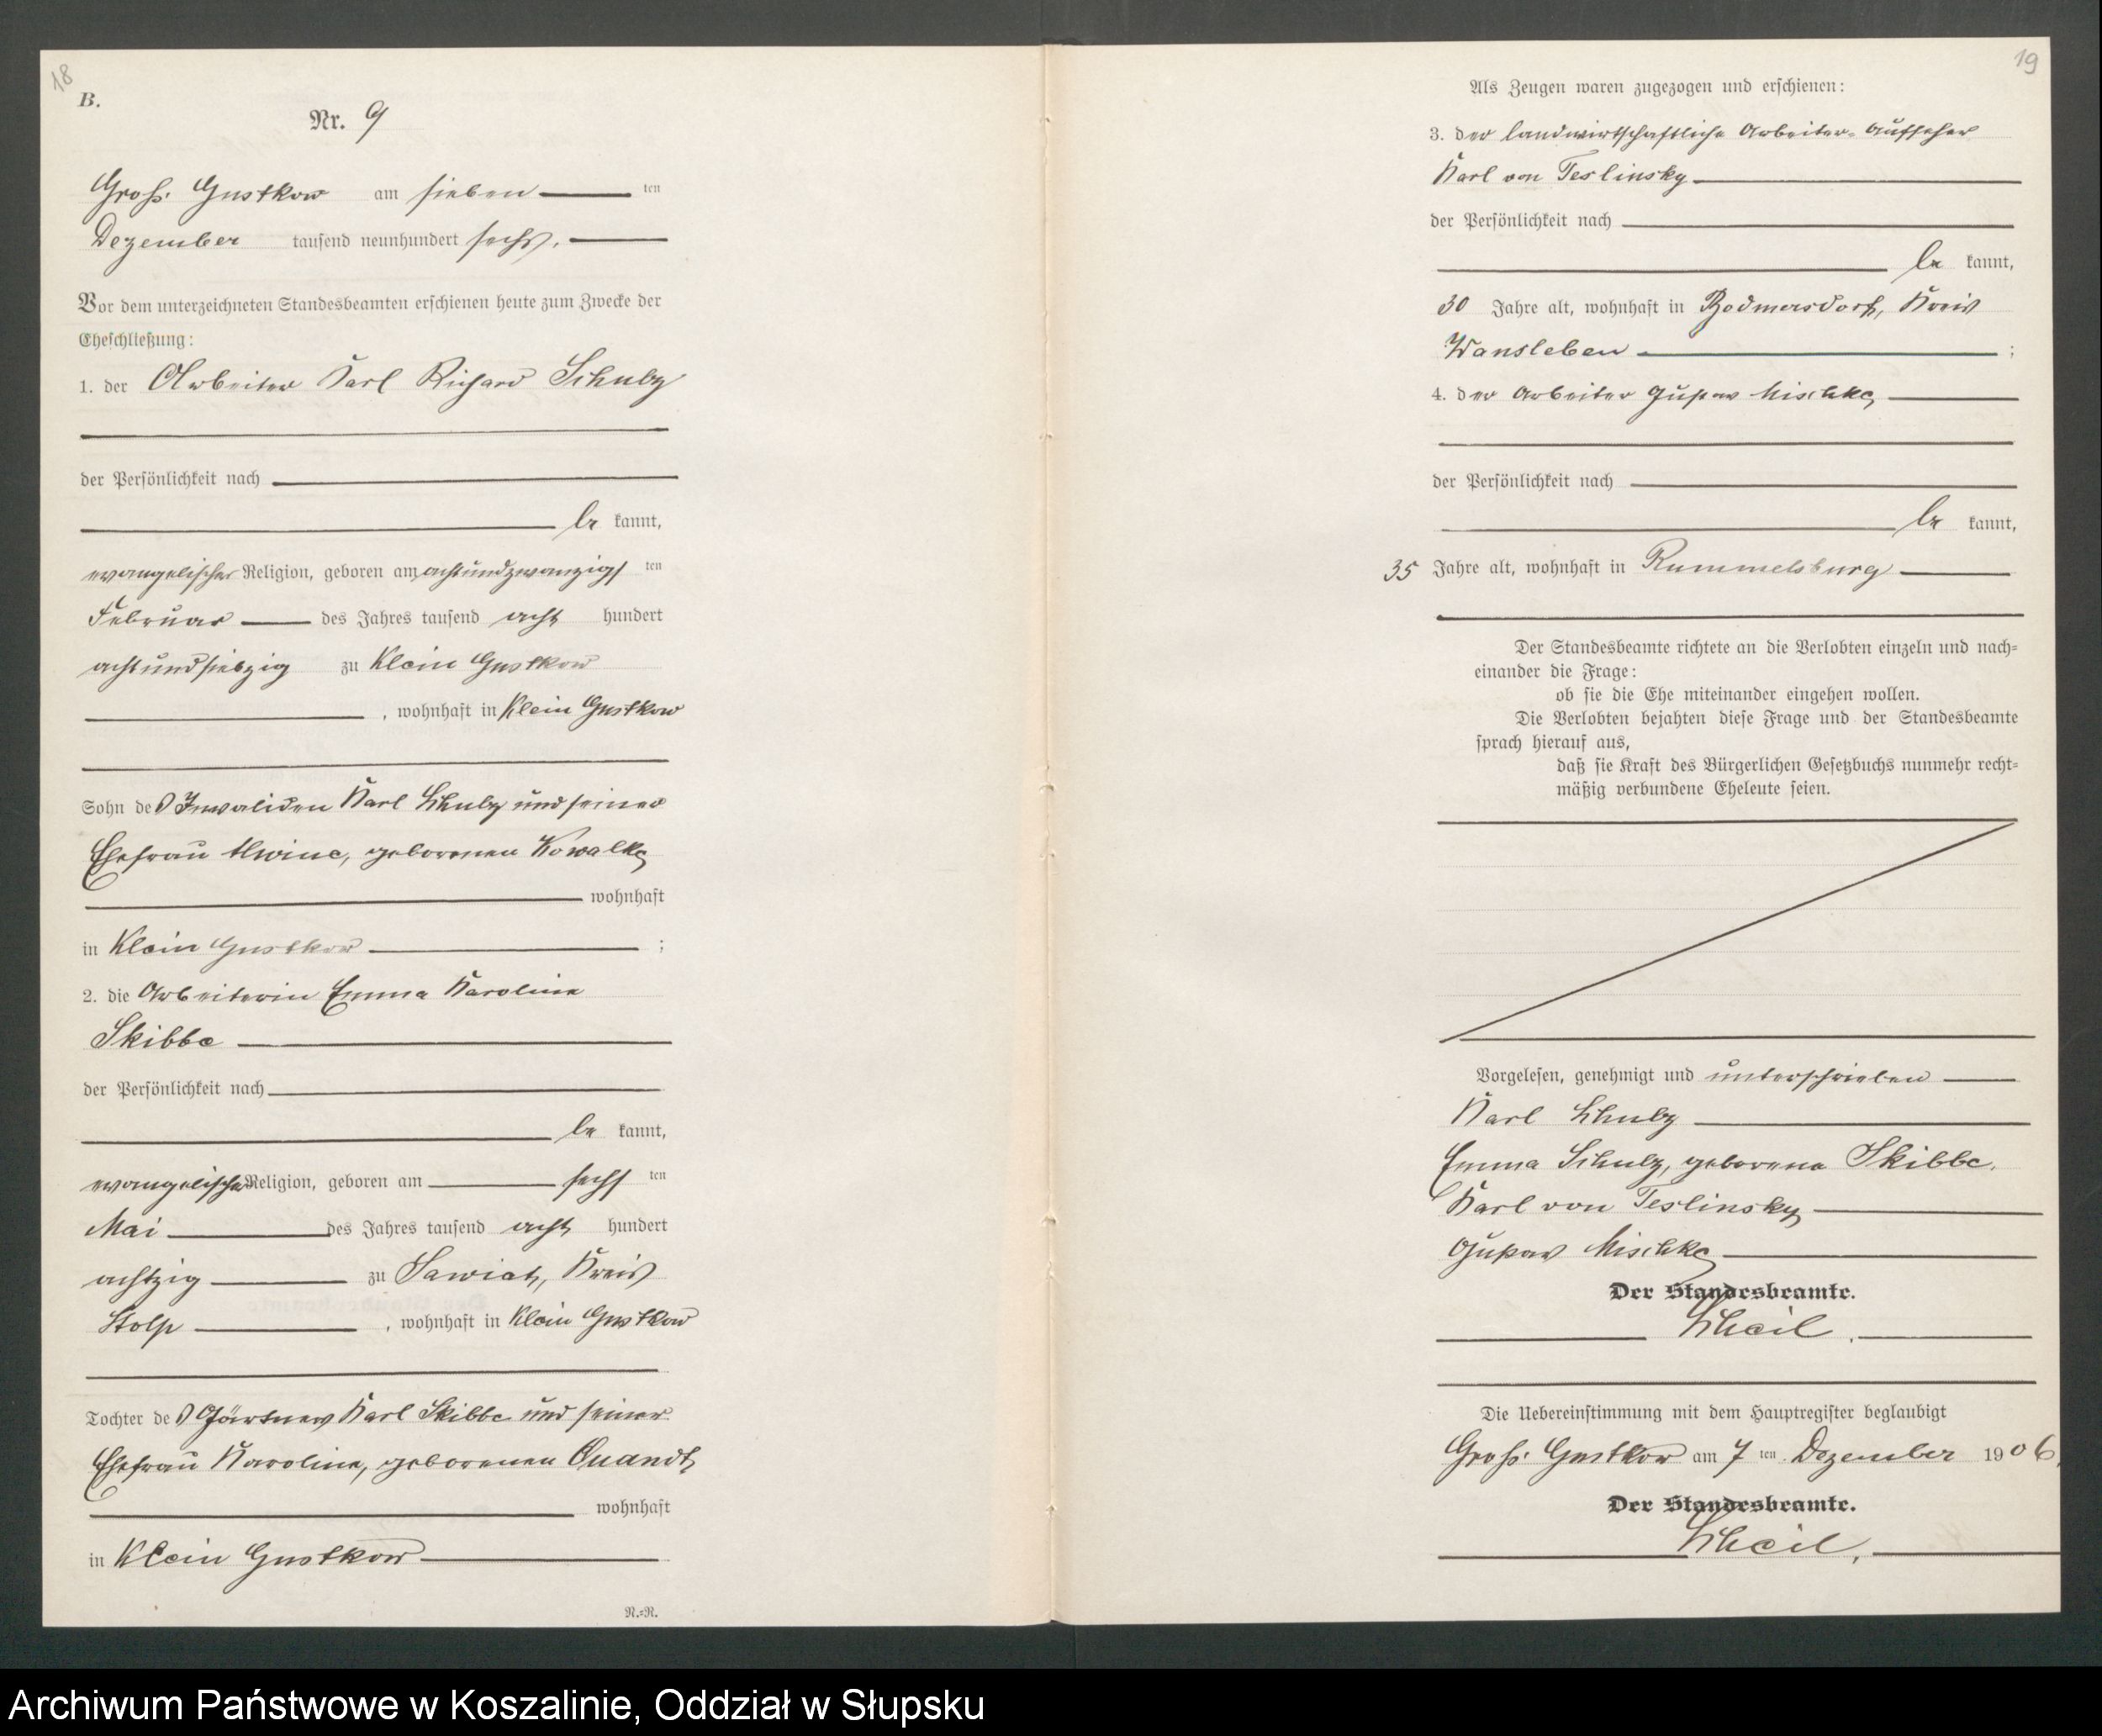 18
B.
Nr. 9
Groß Gustkow am sieben ten
Dezember tausend neunhundert sechs.
Vor dem unterzeichneten Standesbeamten erschienen heute zum Zwecke der
Eheschließung:
1. der Arbeiter Karl Richard Schulz
der Persönlichkeit nach
be kannt,
evangelischer Religion, geboren am achtundzwanzigs ten
Februar des Jahres tausend acht hundert
achtundsiebzig zu Klein Gustkow
, wohnhaft in Klein Gustkow
Sohn des Invaliden Karl Schulz und seiner
Ehefrau Alwine, geborenen Kowalke
wohnhaft
in Klein Gustkow ;
2. die Arbeiterin Emma Karoline
Skibbe
der Persönlichkeit nach
be kannt,
evangelischer Religion, geboren am sechs ten
Mai des Jahres tausend acht hundert
achtzig zu Sawiat, Kreis
Stolp , wohnhaft in Klein Gustkow
Tochter des Gärtners Karl Skibbe und seiner
Ehefrau Karoline, geborenen Quandt,
wohnhaft
in Klein Gustkow
N.=N.
19
Als Zeugen waren zugezogen und erschienen:
3. der landwirtschaftliche Arbeiter-Aufseher
Karl von Teslinsky
der Persönlichkeit nach
be kannt,
30 Jahre alt, wohnhaft in Bedmersdorf, Kreis
Wansleben ;
4. der Arbeiter Gustav Mischke,
der Persönlichkeit nach
be kannt,
35 Jahre alt, wohnhaft in Rummelsburg
Der Standesbeamte richtete an die Verlobten einzeln und nach=
einander die Frage:
ob sie die Ehe miteinander eingehen wollen.
Die Verlobten bejahten diese Frage und der Standesbeamte
sprach hierauf aus,
daß sie Kraft des Bürgerlichen Gesetzbuchs nunmehr recht=
mäßig verbundene Eheleute seien.
Vorgelesen, genehmigt und unterschrieben
Karl Schulz
Emma Schulz, geborene Skibbe.
Karl von Teslinsky
Gustav Mischke
Der Standesbeamte.
Scheil.
Die Uebereinstimmung mit dem Hauptregister beglaubigt
Groß Gustkow am 7 ten Dezember 1906.
Der Standesbeamte.
Scheil.
Archiwum Państwowe w Koszalinie, Oddział w Słupsku